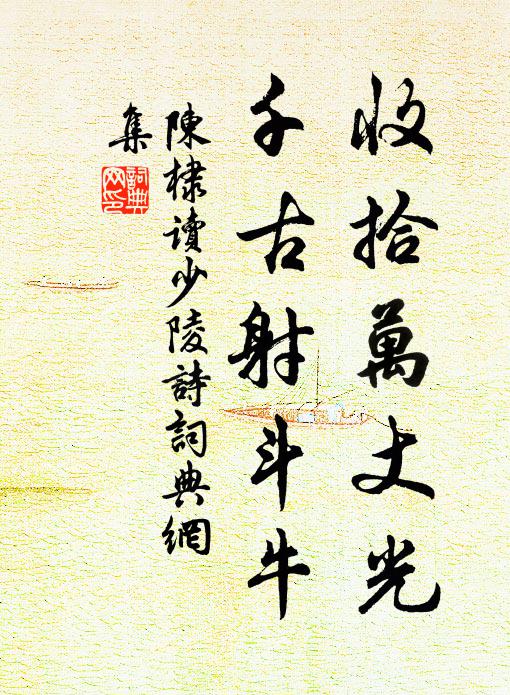 收拾萬丈光
千古射斗牛
陳棣讀少陵詩詞典網
集
詞典
网印